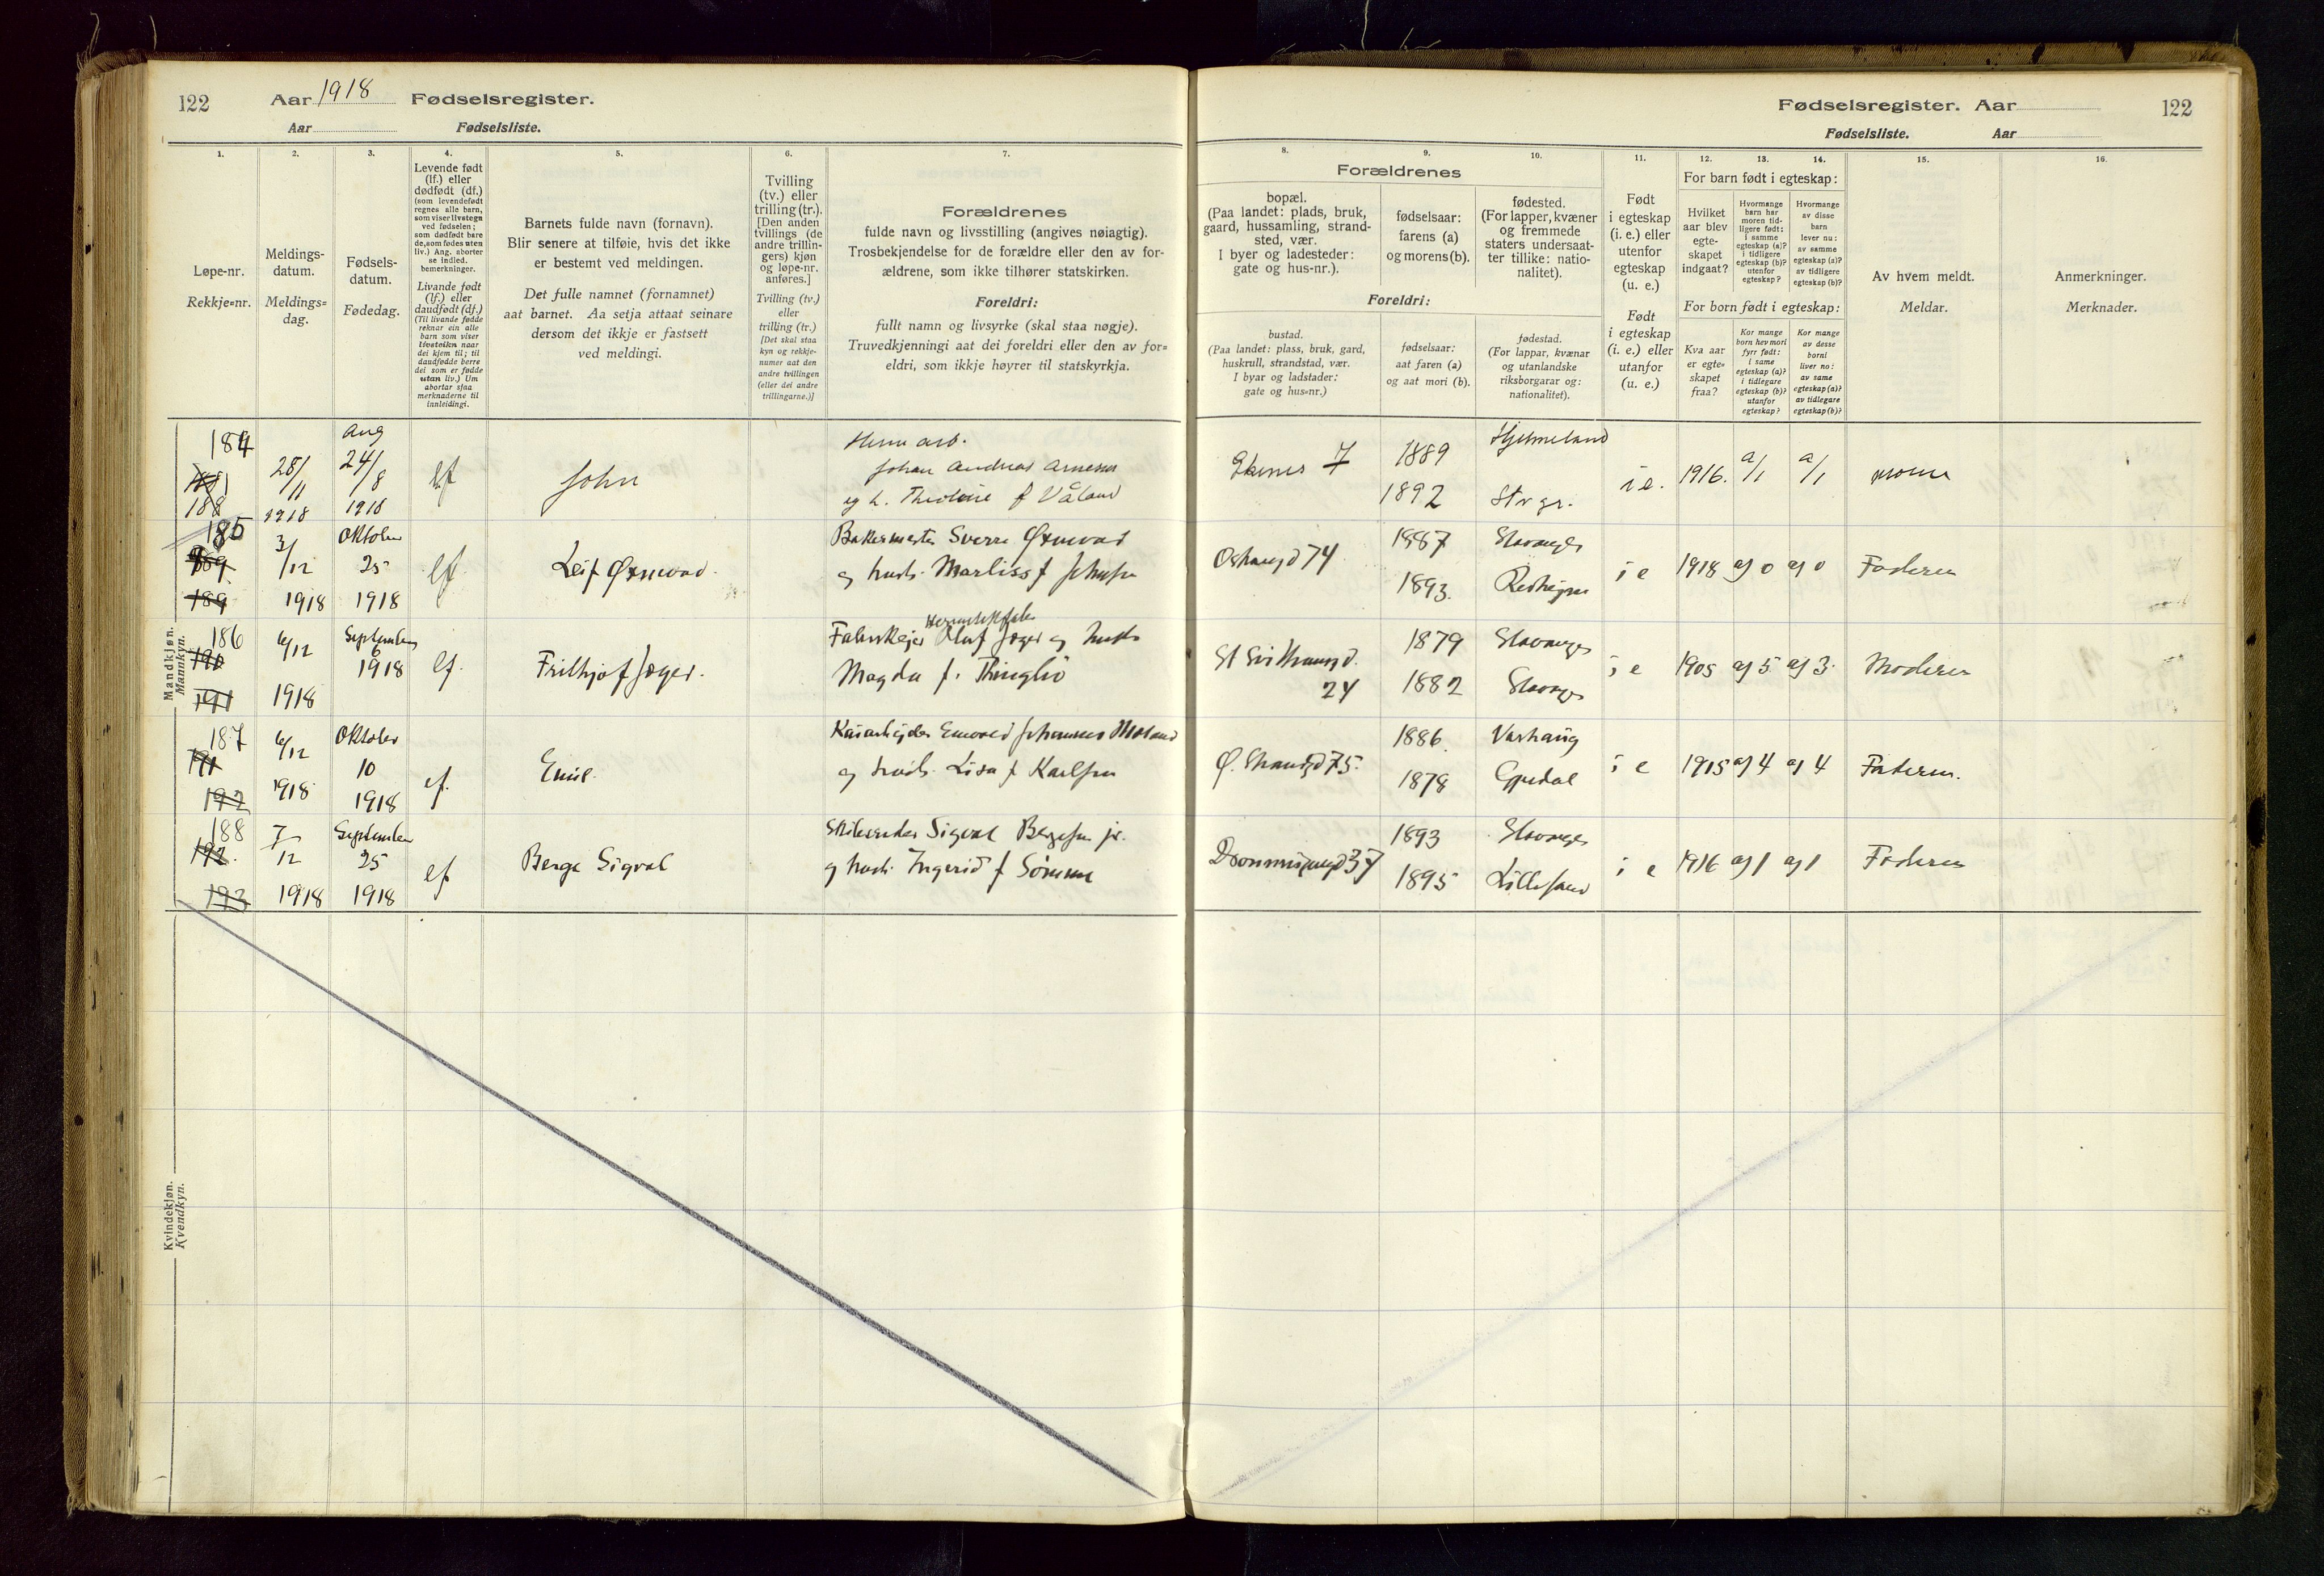 122
Aar 1918 Fødselsregister.
Aar Fødselsliste.
Fødselsregister. Aar
122
Fødselsliste. Aar
1. 2. 3. 4. 5. 6. 7.
Løpe-nr.
Rekkje=nr.
Meldings-
datum.
Meldings=
dag.
Fødsels-
datum.
Fødedag.
Levende født
(lf.) eller
dødfødt (df.)
(som levendefødt
regnes alle barn,
som viser livstegn
ved fødselen;
som dødfødt bare
de, som fødes uten
liv.) Ang. aborter
se indled.
bemerkninger.
Livande født
(lf.) eller
daudfødt (df.)
(Til livande fødde
reknar ein alle
barn som viser
livsteikn naar
dei kjem til; til
daudfødde berre
dei som er fødde
utan liv.) Um
abortar sjaa
merknaderne til
innleidingi.
Barnets fulde navn (fornavn).
Blir senere at tilføie, hvis det ikke
er bestemt ved meldingen.
Det fulle namnet (fornamnet)
aat barnet. Aa setja attaat seinare
dersom det ikkje er fastsett
ved meldingi.
Tvilling
(tv.) eller
trilling (tr.).
[Den anden
tvillings (de
andre trillin-
gers) kjøn
og løpe-nr.
anføres.]
Tvilling (tv.)
eller
trilling (tr.)
[Det skal staa
kyn og rekkje-
numer aat den
andre tvillingen
(eller dei andre
trillingarne.)]
Forældrenes
fulde navn og livsstilling (angives nøiagtig).
Trosbekjendelse for de forældre eller den av for-
ældrene, som ikke tilhører statskirken.
Foreldri:
fullt namn og livsyrke (skal staa nøgje).
Truvedkjenningi aat dei foreldri eller den av for=
eldri, som ikkje høyrer til statskyrkja.
8. 9. 10. 11. 12. 13. 14. 15. 16.
Forældrenes
bopæl.
(Paa landet: plads, bruk,
gaard, hussamling, strand-
sted, vær.
I byer og ladesteder:
gate og hus-nr.).
fødselsaar:
farens (a)
og morens (b).
fødested.
(For lapper, kvæner
og fremmede
staters undersaat-
ter tillike: natio-
nalitet).
Foreldri:
bustad.
(Paa landet: plass, bruk, gard,
huskrull, strandstad, vær.
I byar og ladstader:
gate og hus=nr.)
fødselsaar:
aat faren (a)
og aat mori (b).
fødestad.
(For lappar, kvænar
og utanlandske
riksborgarar og:
nationalitet).
Født
i egteskap
(i. e.) eller
utenfor
egteskap
(u. e.)
Født
i egteskap
(i. e.) eller
utanfor
(u. e.)
For barn født i egteskap:
Hvilket
aar blev
egte-
skapet
indgaat?
Hvormange
barn har
moren tid-
ligere født:
i samme
egteskap (a)?
i tidligere
egteskap (b)?
utenfor
egteskap?
Hvormange
av disse
barn
lever nu:
av samme
egteskap (a)?
av tidligere
egteskap (b)?
For born født i egteskap:
Kva aar
er egte=
skapet
fraa?
Kor mange
born hev mori
fyrr født:
i same
egteskap (a)?
i tidlegare
egteskap (b)?
utanfor
egteskap?
Kor mange
av desse
borni
liver no:
av same
egteskap (a)?
av tidlegare
egteskap (b)?
Av hvem meldt.
Meldar.
Anmerkninger.
Merknader.
Mandkjøn.
Mannkyn.
184
188
28/11 1918
Aug 24/8 1918
lf
John
Herm arb.
Johan Andreas Arnesen
og h. f Våland
7
1889
1892
Hjelmeland
Stvgr.
i e. 1916. a/1 a/1
185
189
3/12 1918
Oktober 25 1918
lf
Leif Ørnevad
Bakermester Sverre Ørnevad
og hustr. Marliss f Johnsen
74
1887
1893
Stavanger
i e 1918 a) 0 a) 0 Faderen
186
190
191
6/12 1918
September 6 1918
lf.
Frithjof Jæger.
Olaf Jæger og hustr
Magda f. Thingbø
St Svithunsgd.
24
1879
1882
Stavanger
Stavanger
i e 1905 a) 5 a) 3 Moderen
187
191
192
6/12 1918
Oktober 10 1918
lf.
Emil
Kaiarbejder Johannes
og hustr. Lisa f Karlsen
Ø. Strandgd 75.
1886
1878
Varhaug
i e 1915 a) 4 a) 4 Faderen.
188
192.
193
7/12 1918
September 25 1918
lf
Berge Sigval
Skibsreder Sigval Bergesen jr.
og hustr. Ingerid f Sømme
37
1893
1895
Stavanger
Lillesand
i e 1916 a) 1 a) 1 Faderen
Kvindekjøn.
Kvendkyn.